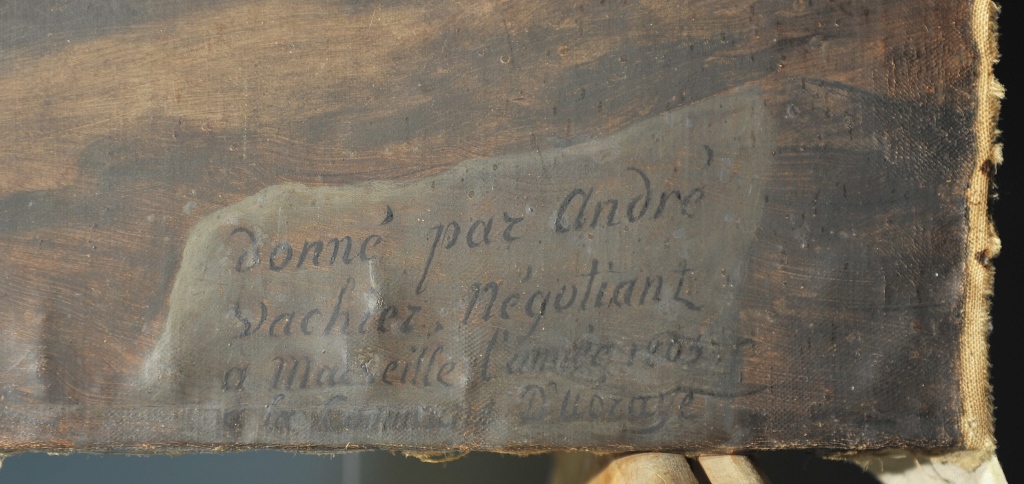 donné par André
Vachier, Négotiant
a Marseille l'année
a la Commune D'